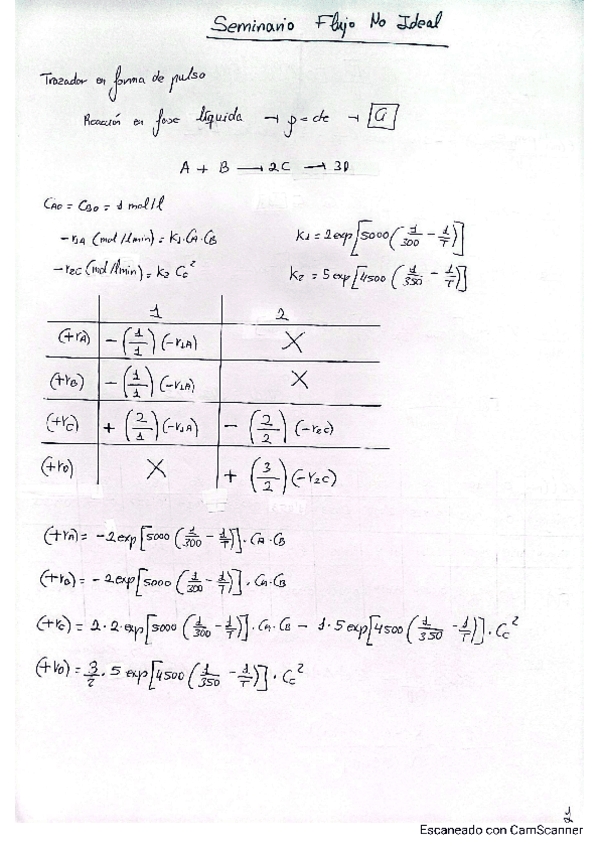 Seminario Flujo No Ideal
Trazador en forma de pulso
Reacción en fase líquida → ρ = cte → Ci
A + B → 2C → 3D
CA0 = CB0 = 1 mol/l
-r1A (mol/lmin) = k1·CA·CB    k1 = 2exp[5000(1/300 - 1/T)]
-r2C (mol/lmin) = k2 Cc²    k2 = 5exp[4500(1/350 - 1/T)]
1 2
(+rA) -(1/1)(-r1A) X
(+rB) -(1/1)(-r1A) X
(+rC) +(2/1)(-r1A) -(2/2)(-r2C)
(+rD) X +(3/2)(-r2C)
(+rA) = -2exp[5000(1/300 - 1/T)]·CA·CB
(+rB) = -2exp[5000(1/300 - 1/T)]·CA·CB
(+rC) = 2·2·exp[5000(1/300 - 1/T)]·CA·CB - 1·5exp[4500(1/350 - 1/T)]·Cc²
(+rD) = 3/2·5exp[4500(1/350 - 1/T)]·Cc²
Escaneado con CamScanner